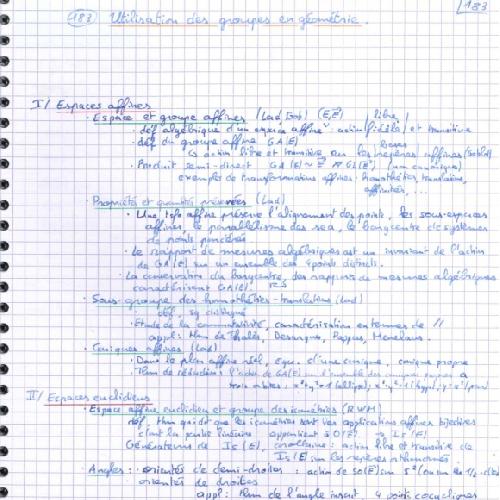 183
183 Utilisation des groupes en géométrie.
I/ Espaces affines
• Espace et groupe affines (Lad, Sob) (E, E) libre
• déf algébrique d'un espace affine : action fidèle et transitive
• déf du groupe affine GA(E)
action libre et transitive sur les repères affines
• Produit semi-direct GA(E) ≃ E ⋊ Gl(E) (non canonique)
exemples de transformations affines : homothéties, translations,
affinités, ...
• Propriétés et quantités préservées (Lad)
• Une affine préserve l'alignement des points, les sous-espaces
affines, le parallélisme des sea, le barycentre de systèmes
de points pondérés
• Le rapport de mesures algébriques est un invariant de l'action
de GA(E) sur un ensemble des points
• La conservation du barycentre, des rapports de mesures algébriques
caractérisent GA(E).
• Sous-groupe des homothéties-translations (Lad)
déf. sg distingué
• Etude de la commutativité, caractérisation en termes de //
appl: thm de Thalès, Desargues, Pappus, Menelaus.
• Coniques affines (Lad)
• Dans le plan affine réel, équ. d'une conique, conique propre
Thm de réduction : l'action de GA(E) sur l'ensemble des coniques propres a
trois orbites : x²+y²=1 (ellipse), x²-y²=1 (hyp), y=x² (para)
II/ Espaces euclidiens
• Espace affine euclidien et groupe des isométries (RWM)
déf. thm qui dit que les isométries sont les applications affines bijectives
dont la partie linéaire appartient à O(E) → Is(E)
Générateurs de Is(E), corollaire : action libre et transitive de
Is(E) sur les repères orthonormés
• Angles : orientés de demi-droites : action de SO(E) sur S¹
orientés de droites
appl : thm de l'angle inscrit, 4 points cocycliques